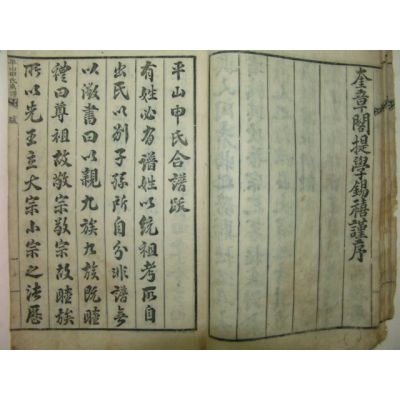 奎章閣提學錫禧謹序
平山申氏合譜跋
有姓必有譜姓以統祖考所自
出氏以別子孫所自分非譜無
以徵書曰以親九族九族既睦
禮曰尊祖故敬宗敬宗故睦族
所以先王立大宗小宗之法歷
平山申氏
跋